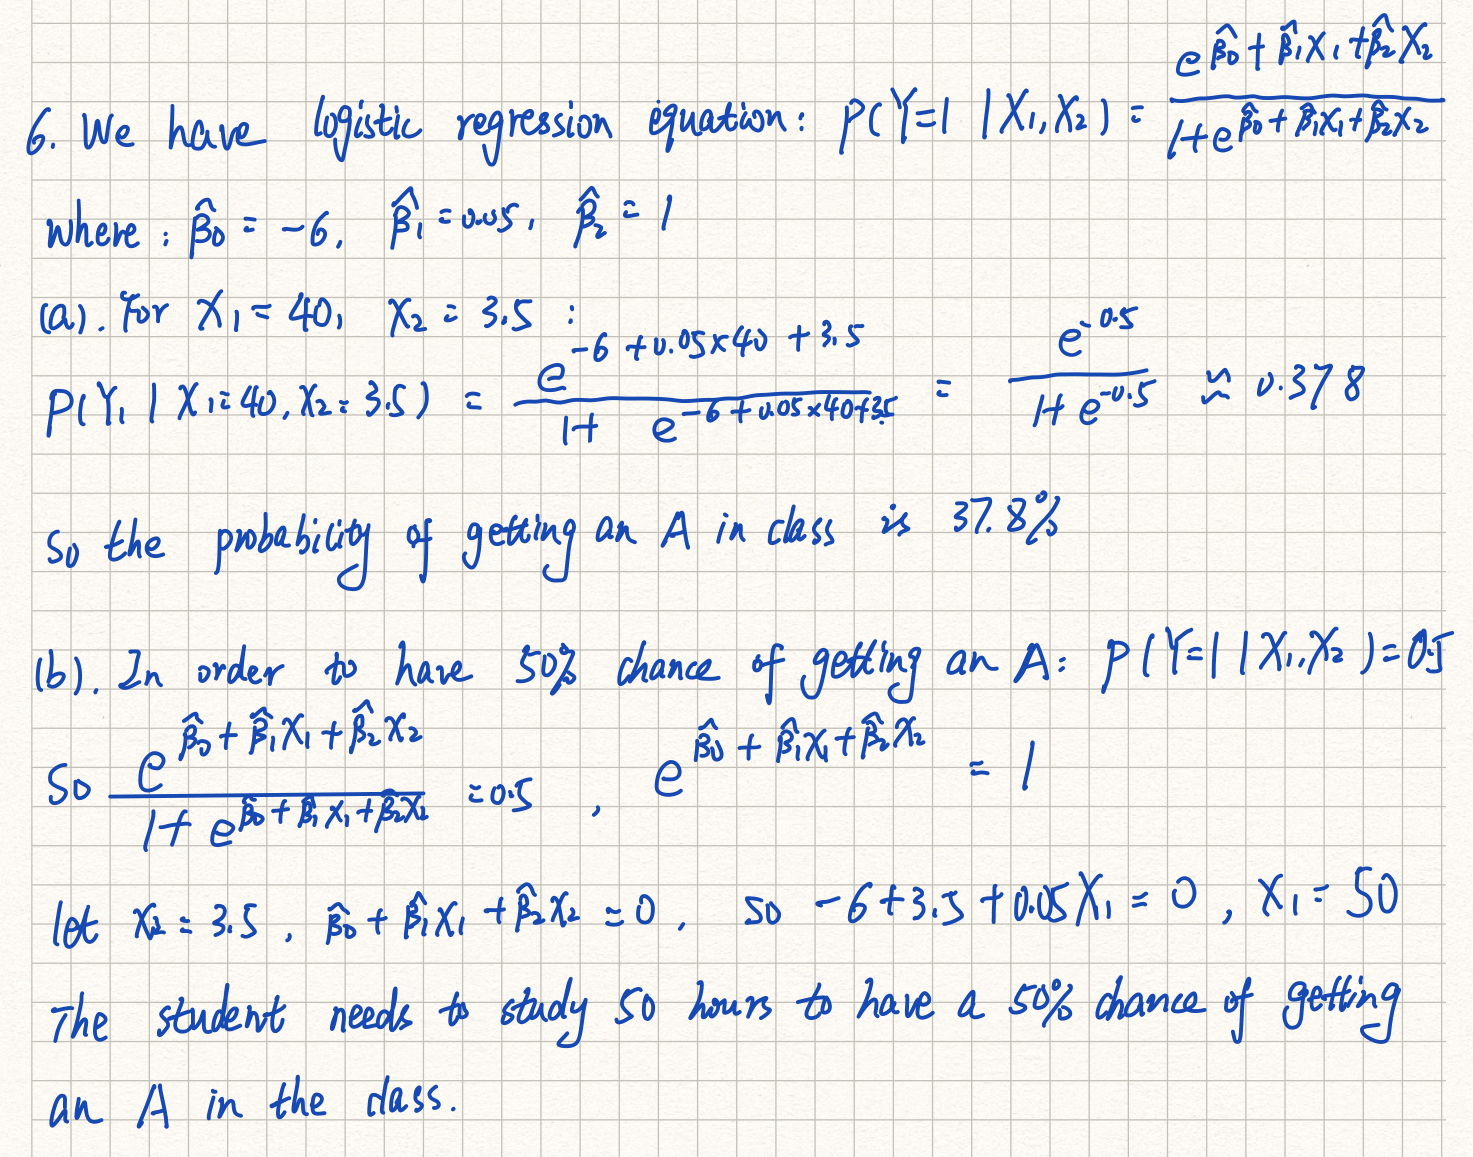 6. We have logistic regression equation: P(Y=1 | X₁, X₂) = e^(β̂₀ + β̂₁X₁ + β̂₂X₂) / (1 + e^(β̂₀ + β̂₁X₁ + β̂₂X₂))
where: β̂₀ = -6, β̂₁ = 0.05, β̂₂ = 1
(a). For X₁ = 40, X₂ = 3.5 :
P(Y₁ | X₁=40, X₂=3.5) = e^(-6 + 0.05×40 + 3.5) / (1 + e^(-6 + 0.05×40 + 3.5)) = e^(-0.5) / (1 + e^(-0.5)) ≈ 0.378
So the probability of getting an A in class is 37.8%
(b). In order to have 50% chance of getting an A: P(Y=1 | X₁, X₂) = 0.5
So e^(β̂₀ + β̂₁X₁ + β̂₂X₂) / (1 + e^(β̂₀ + β̂₁X₁ + β̂₂X₂)) = 0.5 , e^(β̂₀ + β̂₁X₁ + β̂₂X₂) = 1
let X₂ = 3.5 , β̂₀ + β̂₁X₁ + β̂₂X₂ = 0 , so -6+3.5+0.05X₁ = 0 , X₁ = 50
The student needs to study 50 hours to have a 50% chance of getting
an A in the class.